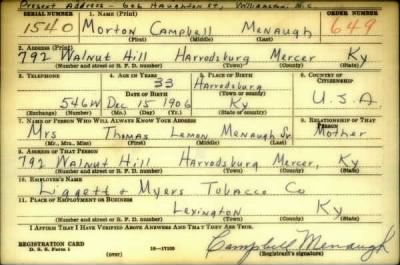 Present Address - 606 Haughton St., Williamston N.C
SERIAL NUMBER 1. NAME (Print) ORDER NUMBER
1540 Morton Campbell Menaugh 649
(First) (Middle) (Last)
2. ADDRESS (Print)
792 Walnut Hill Harrodsburg Mercer Ky
(Number and street or R. F. D. number) (Town) (County) (State)
3. TELEPHONE 4. AGE IN YEARS 5. PLACE OF BIRTH 6. COUNTRY OF CITIZENSHIP
33 Harrodsburg
DATE OF BIRTH (Town or county)
546W Dec 15 1906 Ky U.S.A.
(Exchange) (Number) (Mo.) (Day) (Yr.) (State or country)
7. NAME OF PERSON WHO WILL ALWAYS KNOW YOUR ADDRESS 8. RELATIONSHIP OF THAT PERSON
Mrs Thomas Lemon Menaugh Sr Mother
(Mr., Mrs., Miss) (First) (Middle) (Last)
9. ADDRESS OF THAT PERSON
792 Walnut Hill Harrodsburg Mercer, Ky
(Number and street or R. F. D. number) (Town) (County) (State)
10. EMPLOYER'S NAME
Liggett & Myers Tobacco Co
11. PLACE OF EMPLOYMENT OR BUSINESS
Lexington Ky
(Number and street or R. F. D. number) (Town) (County) (State)
I AFFIRM THAT I HAVE VERIFIED ABOVE ANSWERS AND THAT THEY ARE TRUE.
REGISTRATION CARD
D. S. S. Form 1 (over) 16-17105 Campbell Menaugh
(Registrant's signature)